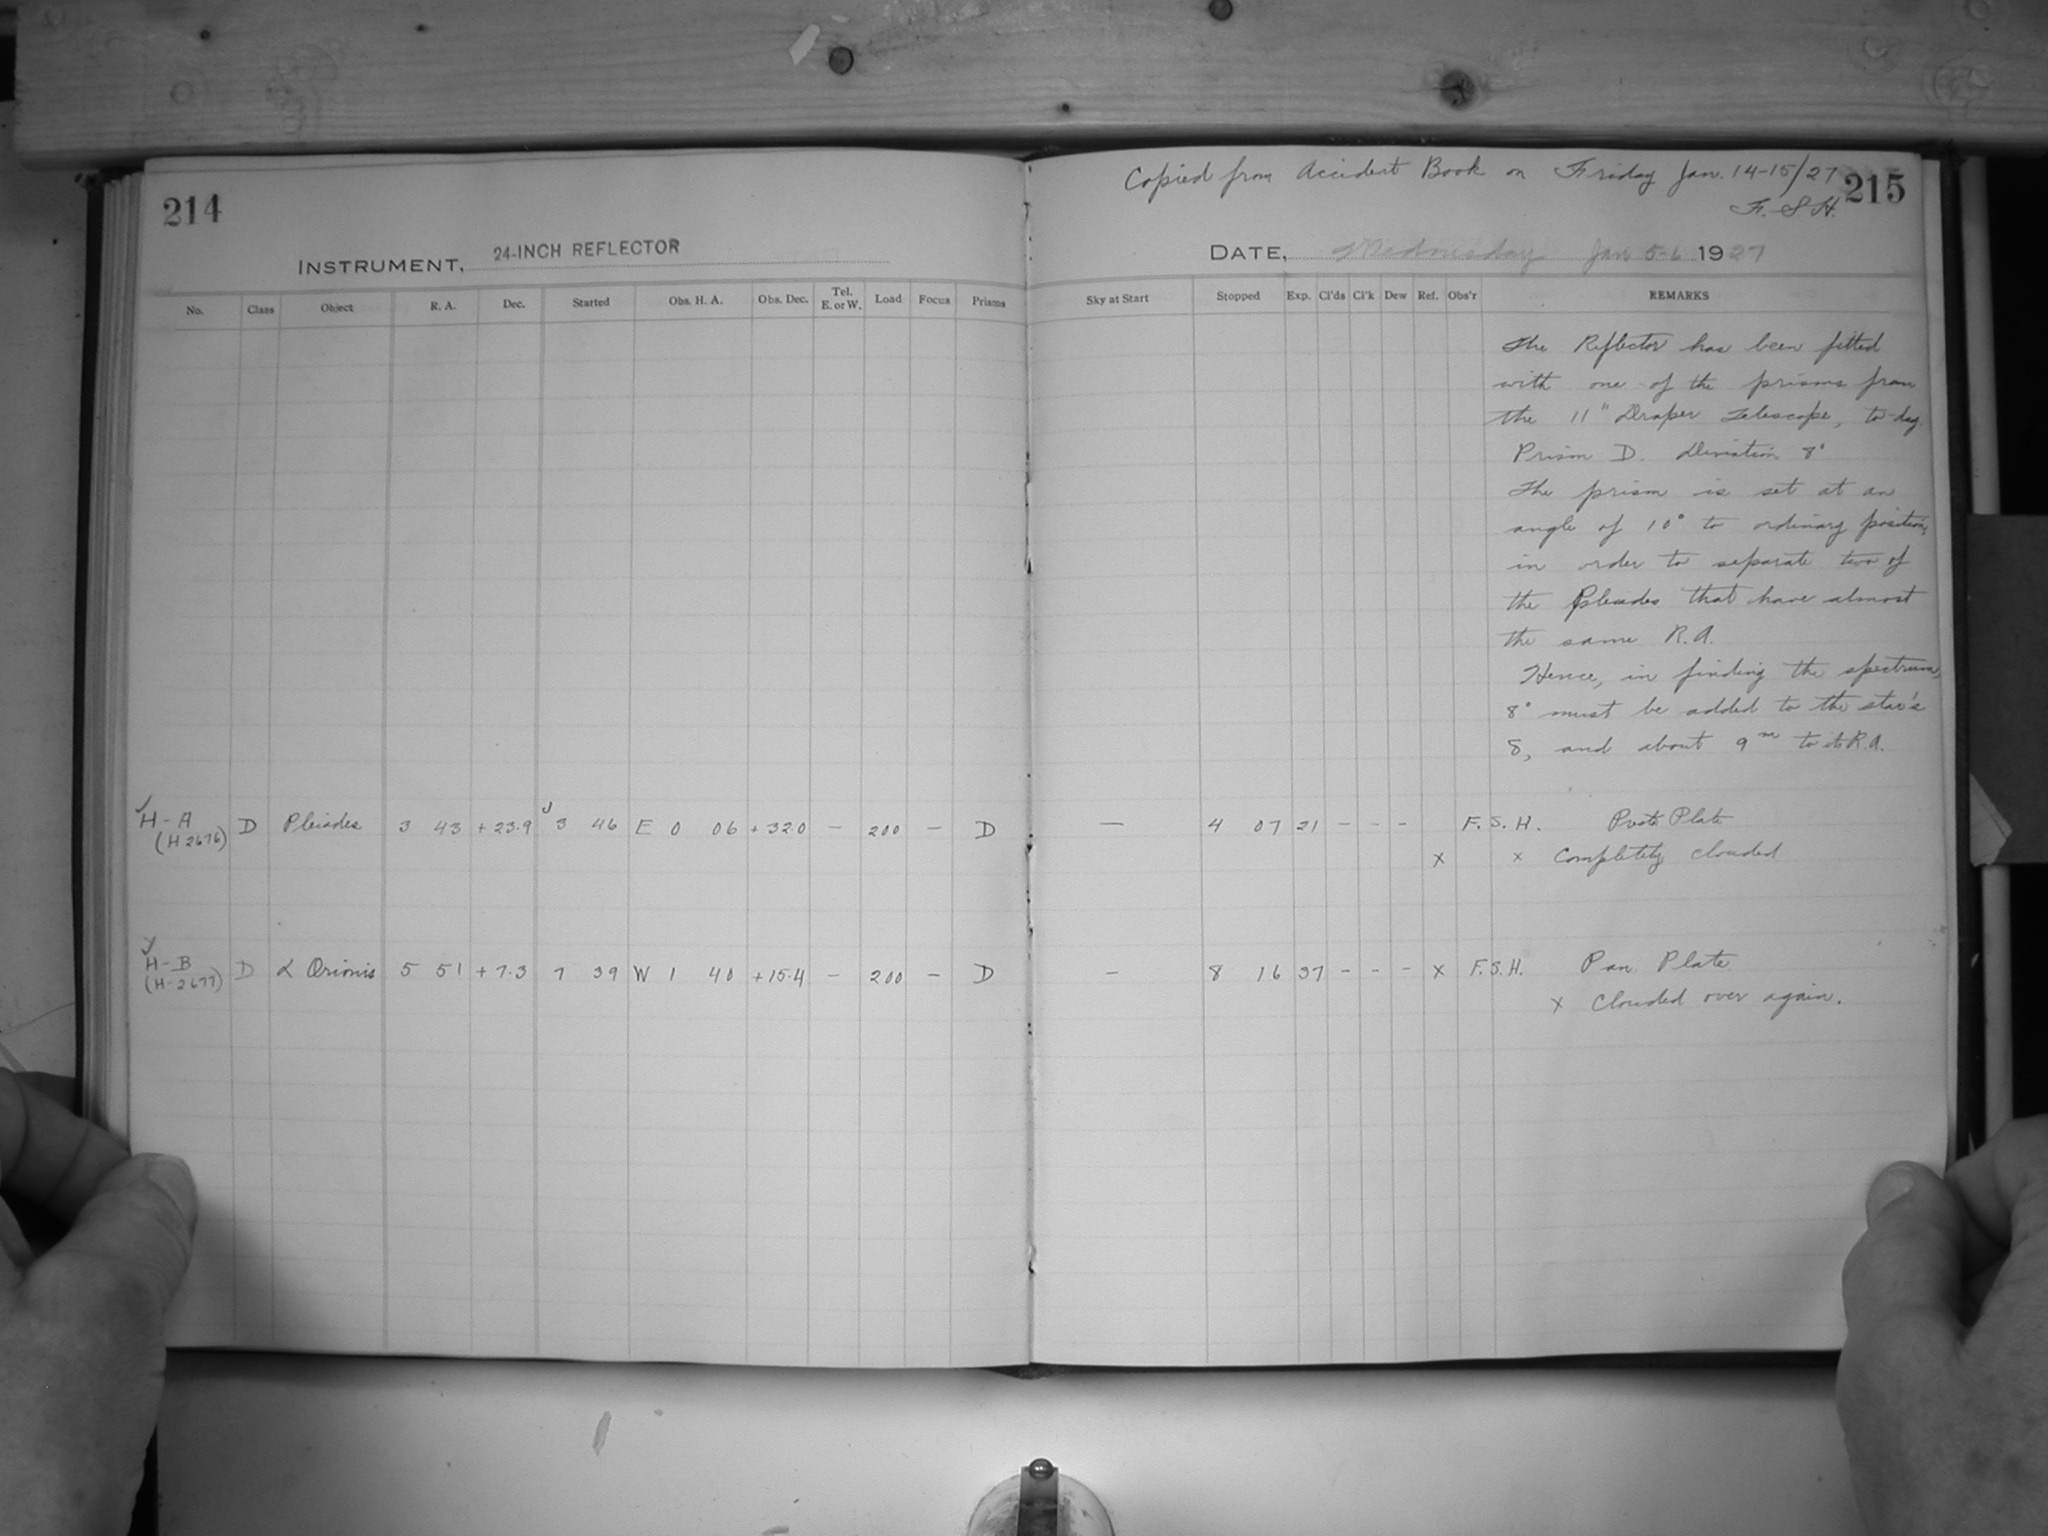 214
INSTRUMENT, 24-INCH REFLECTOR
No. Class Object R. A. Dec. Started Obs. H. A. Obs. Dec. Tel. E. or W. Load Focus Prisms
✓ H-A D Pleiades 3 43 +23.9 ✓ 3 46 E 0 06 +32.0 — 200 — D
(H 2676)
✓ H-B D α Orionis 5 51 +7.3 7 39 W 1 40 +15.4 — 200 — D
(H-2677)
Copied from Accident Book on Friday Jan. 14-15/27
F. S. H.
215
DATE, Wednesday Jan 5-6 1927
Sky at Start Stopped Exp. Cl'ds Cl'k Dew Ref. Obs'r REMARKS
The Reflector has been fitted
with one of the prisms from
the 11" Draper Telescope, to-day.
Prism D. Deviation 8°
The prism is set at an
angle of 10° to ordinary position,
in order to separate two of
the Pleiades that have almost
the same R.A.
Hence, in finding the spectrum,
8° must be added to the star's
δ, and about 9m to its R.A.
— 4 07 21 - - - F. S. H. Plate
x x Completely clouded
— 8 16 37 - - - x F. S. H. Pan. Plate
x Clouded over again.